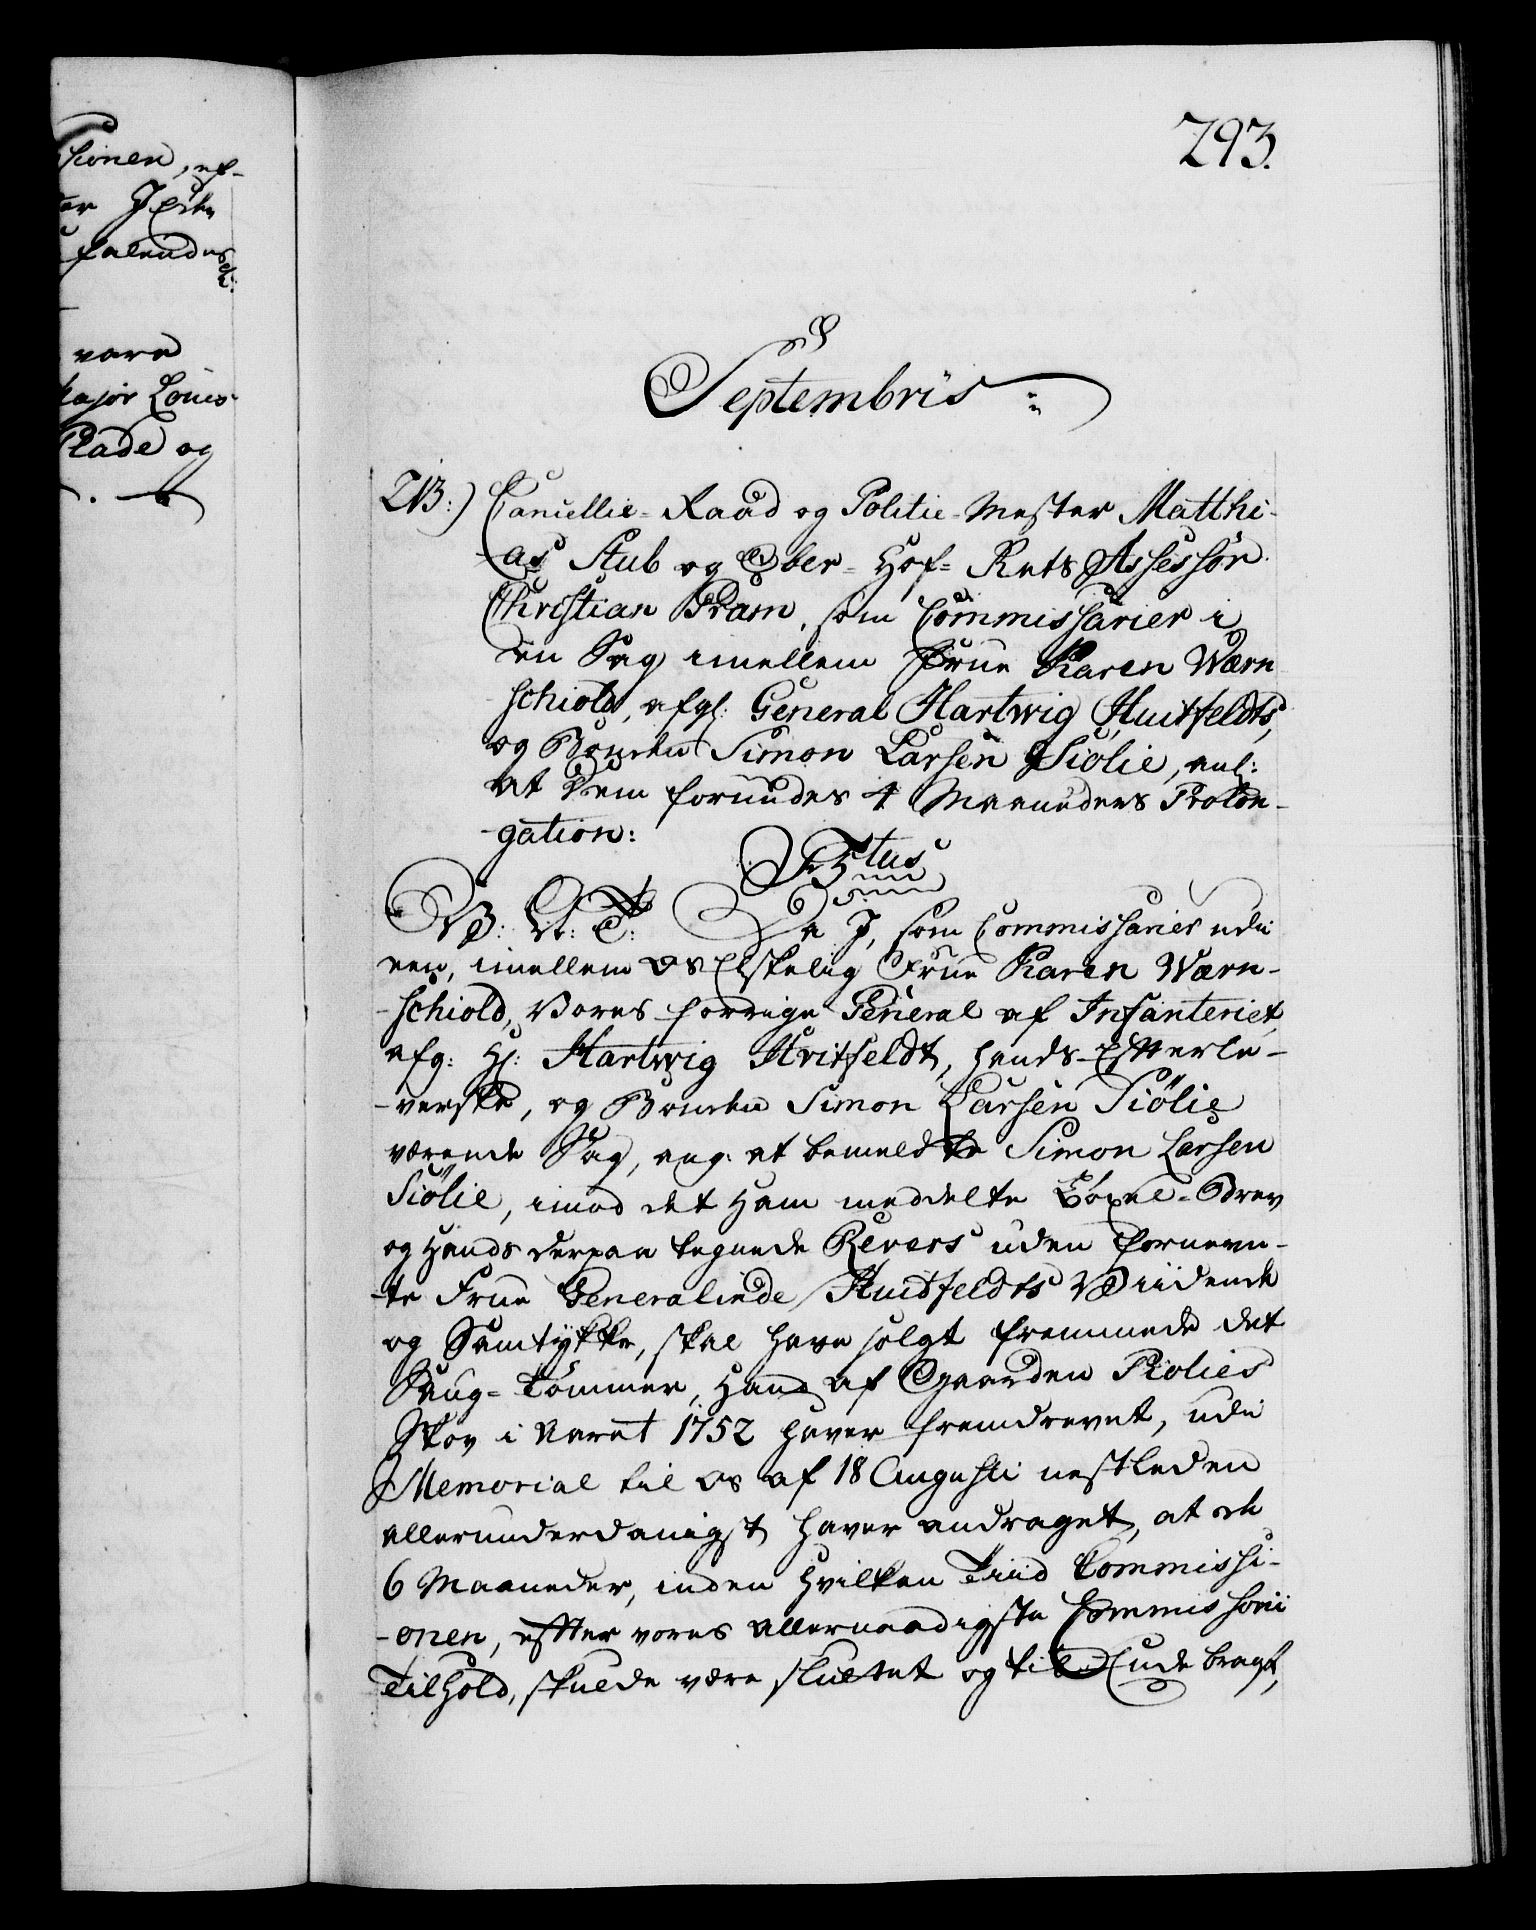 293.
sionen, ef-
ter
falendes
vore
Major Louis
Plade og
Septembris
213:) Cancellie-Raad og Politie-Mester Matthi-
as Stub og Ober-Hof-Rets Assessor
Christian Pram, som Commissarier i
den Sag imellem Frue Karen Wærn
schiold, afgl: General Hartwig Huitfeldts,
og Bonden Simon Larsen Siölie, anl:
at Dem forundes 4 Maaneders Prolon-
gation:
F 5tus
V: G: T: Da I, som Commissarier udi
een, imellem Os Elskelig Frue Karen Wærn-
-schiold, Vores forrige General af Infanteriet,
afg: Hl: Hartwig Hvitfeldt, hands Efterle-
-verske, og Bonden Simon Larsen Siölie
værende Sag, ang: at bemeldte Simon Larsen
Siölie, imod det Ham meddelte Böxel-Brev
og Hands derpaa tegnede Revers uden fornevn-
-te Frue Generalinde Huidfeldts Viidende
og Samtykke, skal have solgt fremmede det
Saug-Tömmer, Hand af Gaarden Siölies
Skov i Aaret 1752 haver fremdrevet, udi
Memorial til Os af 18 Augusti nestleden
allerunderdanigst haver andraget, at de
6 Maaneder, inden hvilken Tiid Commissi-
-onen, efter vores allernaadigste Commissorii
Tilhold, skulde være sluttet og til Ende bragt,